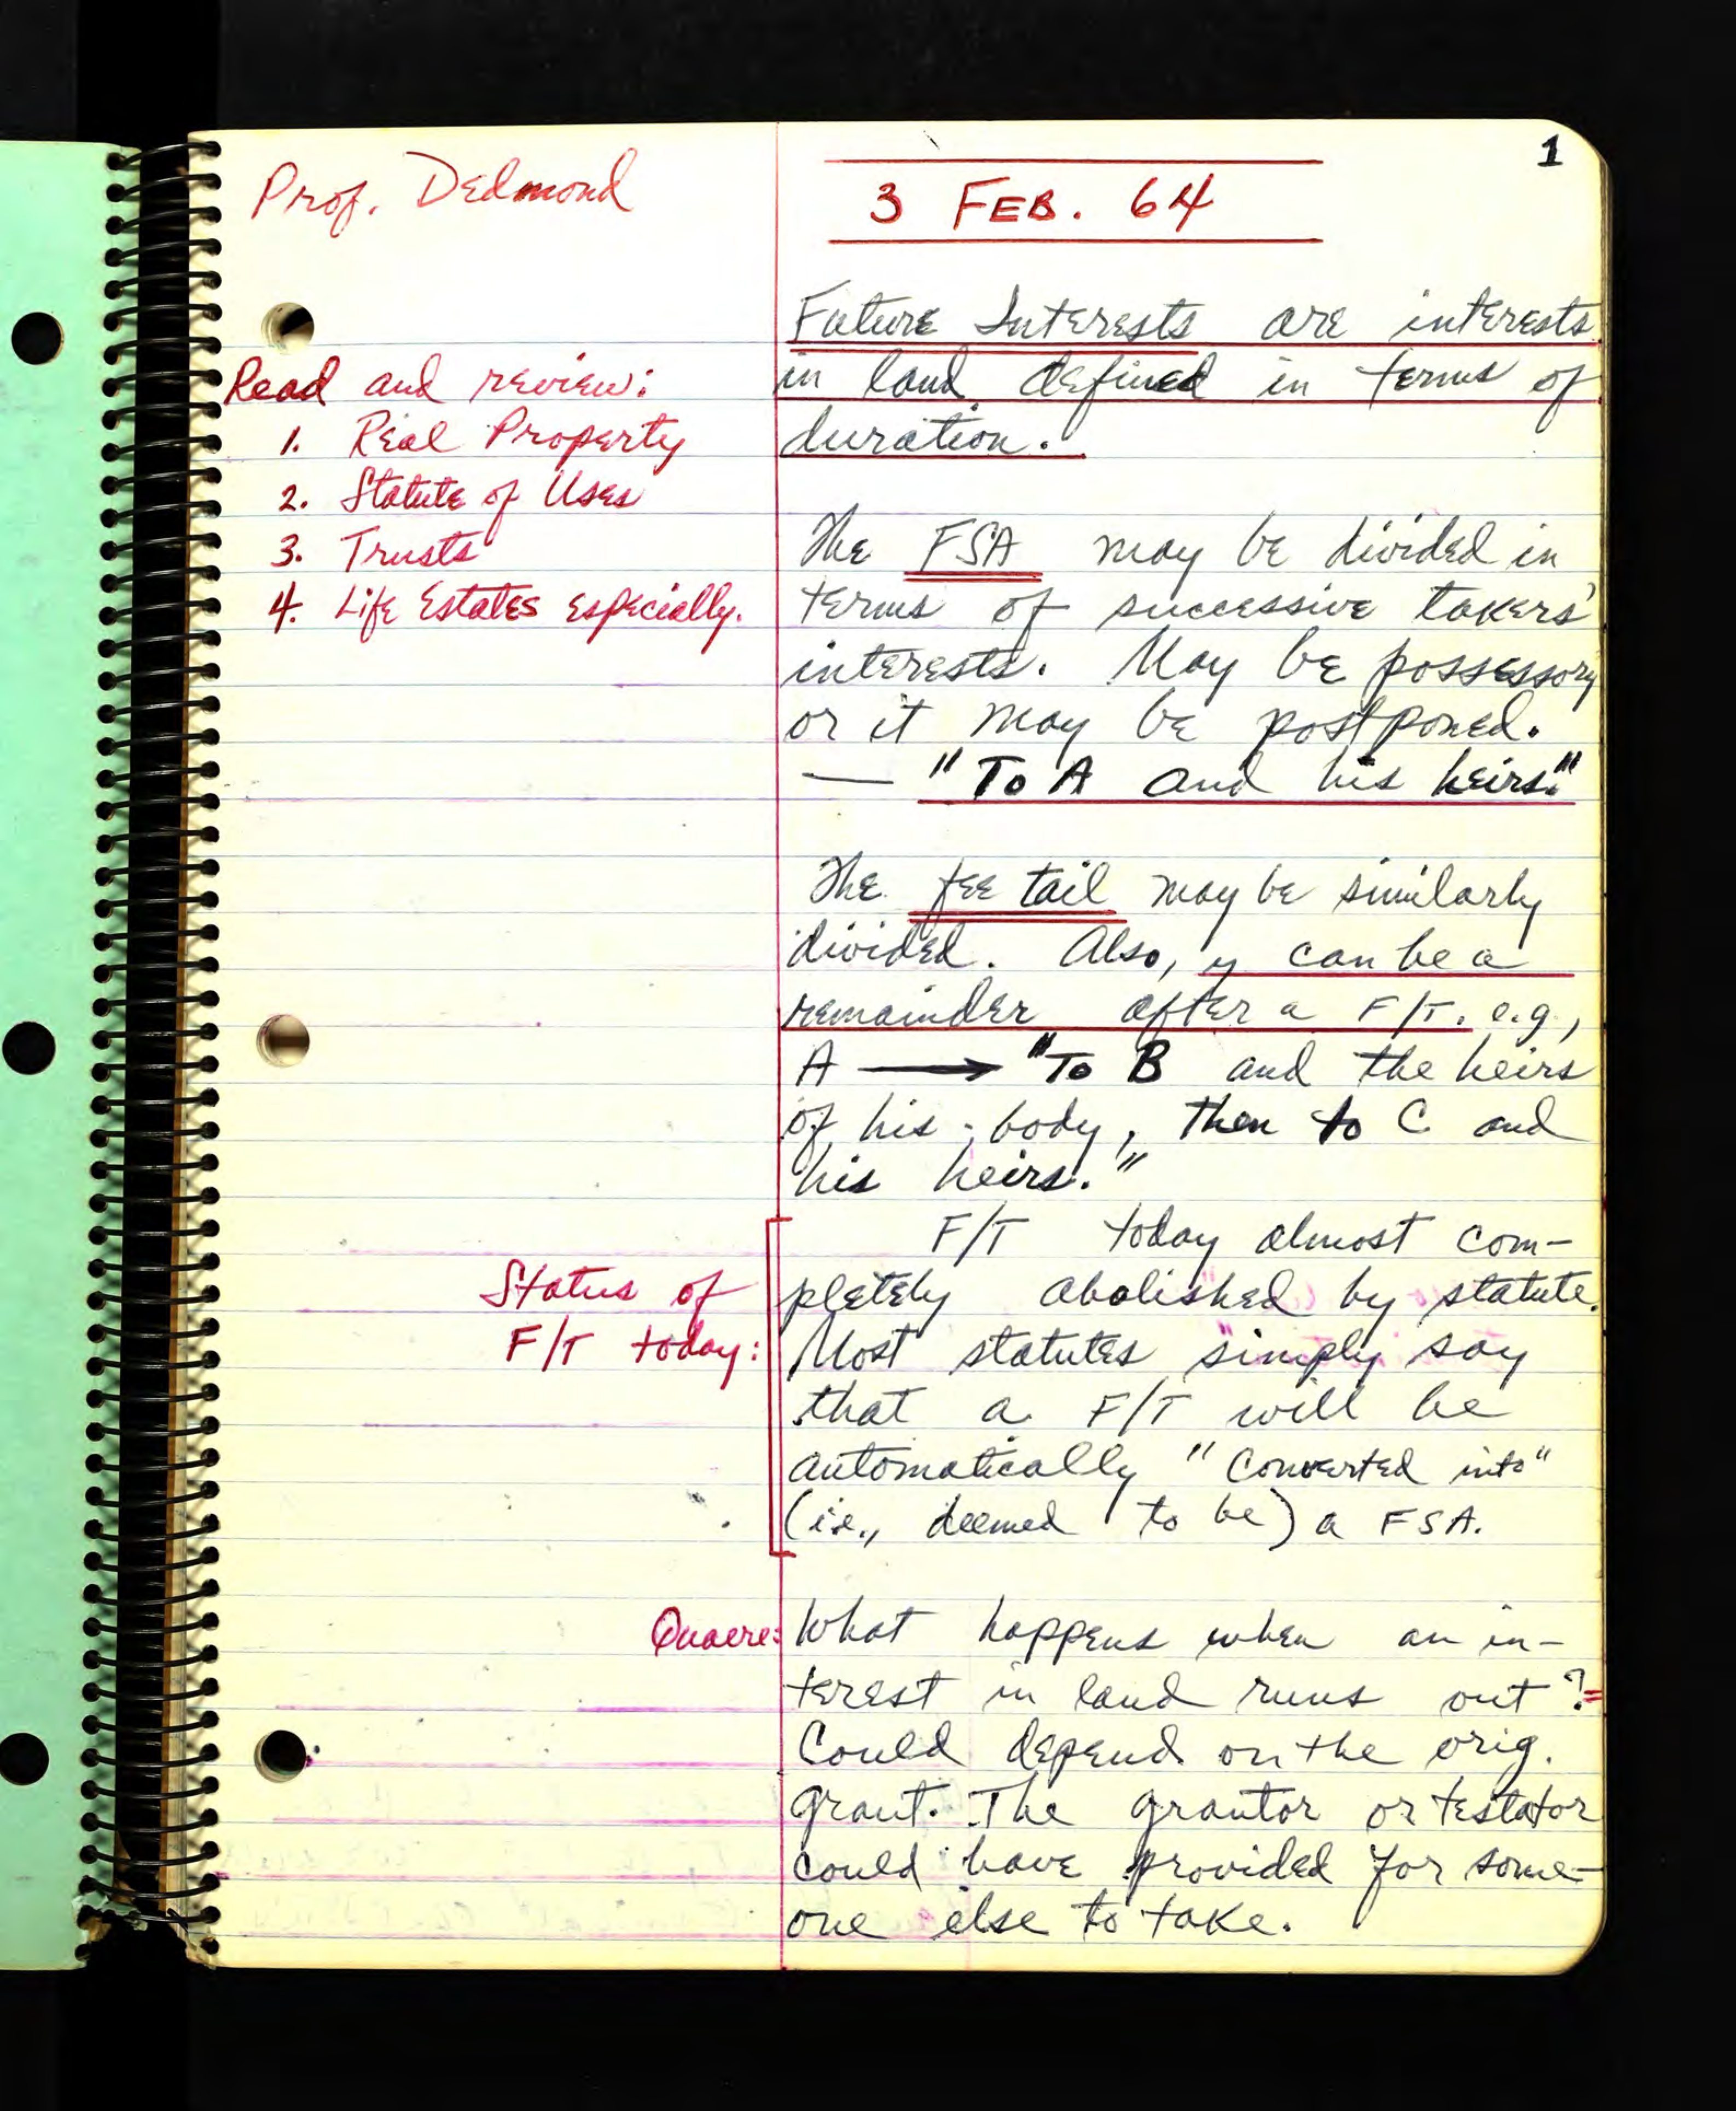 1
Prof. Dedmond
3 FEB. 64
Future Interests are interests
in land defined in terms of
duration.
Read and review:
1. Real Property
2. Statute of Uses
3. Trusts
4. Life Estates especially.
The FSA may be divided in
terms of successive takers'
interests. May be possessory
or it may be postponed.
— "To A and his heirs."
The fee tail may be similarly
divided. Also, can be a
remainder after a F/T. e.g.,
A → "To B and the heirs
of his body, then to C and
his heirs."
Status of
F/T today:
F/T today almost com-
pletely abolished by statute.
Most statutes simply say
that a F/T will be
automatically "converted into"
(i.e., deemed to be) a FSA.
Quaere:
What happens when an in-
terest in land runs out?
Could depend on the orig.
grant. The grantor or testator
could have provided for some-
one else to take.